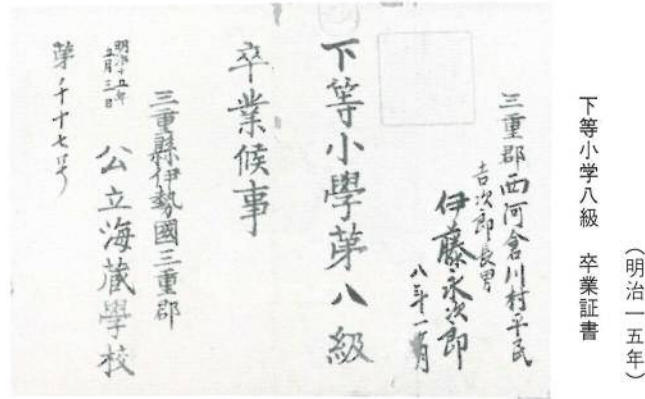 (明治一五年)
下等小学八級　卒業証書
三重郡西河倉川村平民
吉次郎長男
伊藤永次郎
八年十一月
下等小學第八級
卒業候事
三重縣伊勢國三重郡
公立海蔵學校
明治十五年
五月三日
第千十七号